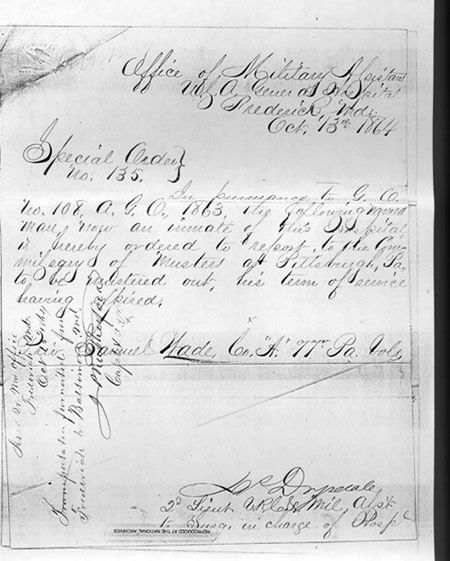 Office of Military Assistant
U.S.A. General Hospital
Frederick, Md.
Oct. 13th 1864
Special Order }
No. 135. }
In pursuance to G. O.
No. 108, A. G. O., 1863, the following named
man, now an inmate of this Hospital,
is hereby ordered to report to the Com-
missary of Musters at Pittsburgh, Pa.
to be mustered out, his term of service
having expired.
Samuel Wade, Co. "A" 77th Pa. Vols.
Drysdale
2d Lieut. V.R.C. & Mil. Asst.
to Surg. in charge of Hospl
Transportation furnished from
Frederick to Baltimore Md
Capt
REPRODUCED AT THE NATIONAL ARCHIVES